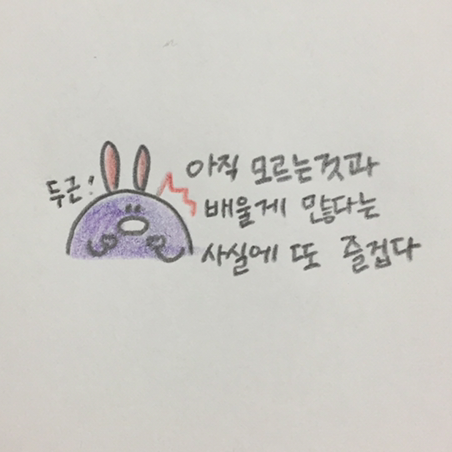 두근!
아직 모르는것과
배울게 많다는
사실에 또 즐겁다